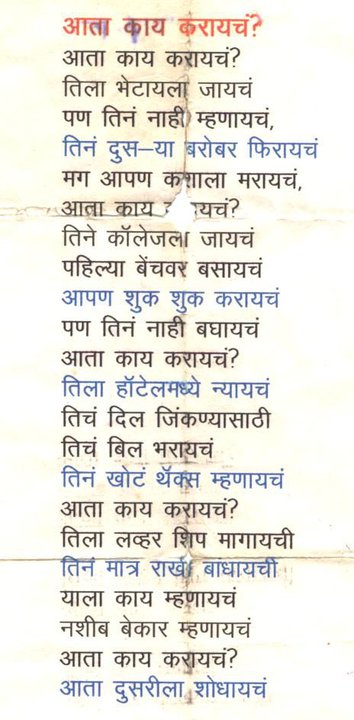 आता काय करायचं?
आता काय करायचं?
तिला भेटायला जायचं
पण तिनं नाही म्हणायचं,
तिनं दुस–या बरोबर फिरायचं
मग आपण कशाला मरायचं,
आता काय करायचं?
तिने कॉलेजला जायचं
पहिल्या बेंचवर बसायचं
आपण शुक शुक करायचं
पण तिनं नाही बघायचं
आता काय करायचं?
तिला हॉटेलमध्ये न्यायचं
तिचं दिल जिंकण्यासाठी
तिचं बिल भरायचं
तिनं खोटं थॅक्स म्हणायचं
आता काय करायचं?
तिला लव्हर शिप मागायची
तिनं मात्र राखी बांधायची
याला काय म्हणायचं
नशीब बेकार म्हणायचं
आता काय करायचं?
आता दुसरीला शोधायचं